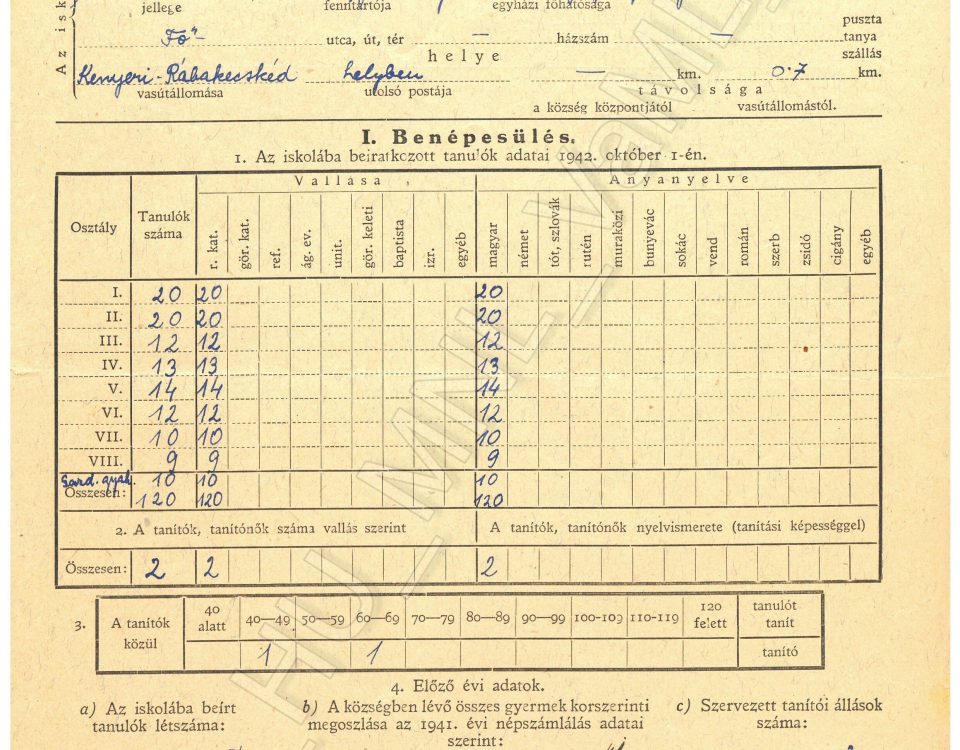 Az isk
jellege fenntartója egyházi főhatósága
puszta
Fő- utca, út, tér — házszám — tanya
helye szállás
Kenyeri-Rábakecskéd helyben — km. 0·7 km.
vasútállomása utolsó postája távolsága
a község központjától vasútállomástól.
I. Benépesülés.
1. Az iskolába beiratkozott tanulók adatai 1942. október 1-én.
Osztály Tanulók száma Vallása Anyanyelve
r. kat. gör. kat. ref. ág. ev. unit. gör. keleti baptista izr. egyéb magyar német tót, szlovák rutén muraközi bunyevác sokác vend román szerb zsidó cigány egyéb
I. 20 20 20
II. 20 20 20
III. 12 12 12
IV. 13 13 13
V. 14 14 14
VI. 12 12 12
VII. 10 10 10
VIII. 9 9 9
Gazd. gyak. 10 10 10
Összesen: 120 120 120
2. A tanítók, tanítónők száma vallás szerint A tanítók, tanítónők nyelvismerete (tanítási képességgel)
Összesen: 2 2 2
3. A tanítók közül 40 alatt 40—49 50—59 60—69 70—79 80—89 90—99 100-109 110-119 120 felett tanulót tanít
1 1 tanító
4. Előző évi adatok.
a) Az iskolába beírt b) A községben lévő összes gyermek korszerinti c) Szervezett tanítói állások
tanulók létszáma: megoszlása az 1941. évi népszámlálás adatai száma:
szerint:
HU_MNL_VaML